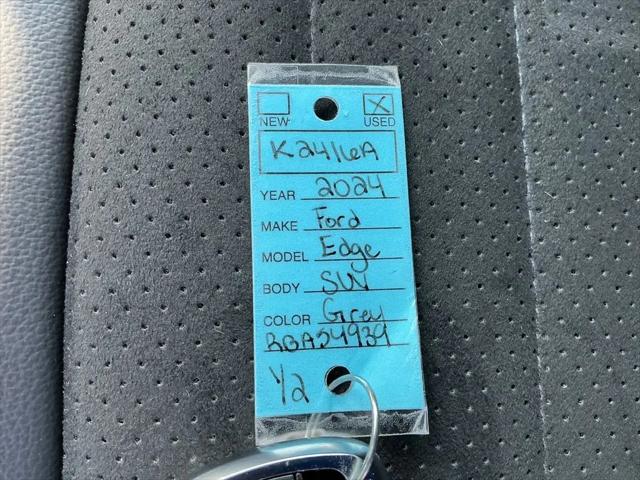 NEW USED
K2416A
YEAR 2024
MAKE Ford
MODEL Edge
BODY SUV
COLOR Grey
RBA54939
Y2